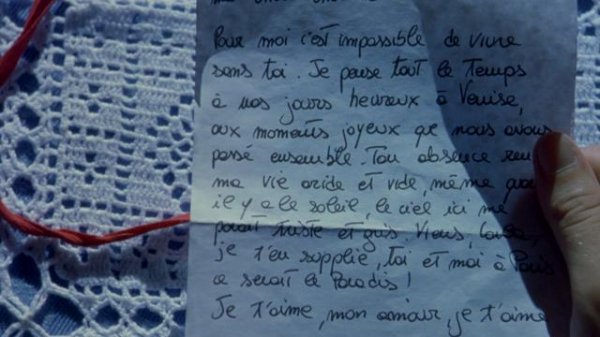 Pour moi c'est impossible de vivre
sans toi. Je pense tout le temps
à nos jours heureux à Venise,
aux moments joyeux que nous avons
passé ensemble. Ton absence ren
ma vie aride et vide, même qua
il y a le soleil, le ciel ici me
parait triste et gris. Viens,
je t'en supplie, toi et moi à Paris
ce serait le Paradis!
Je t'aime, mon amour, je t'aime